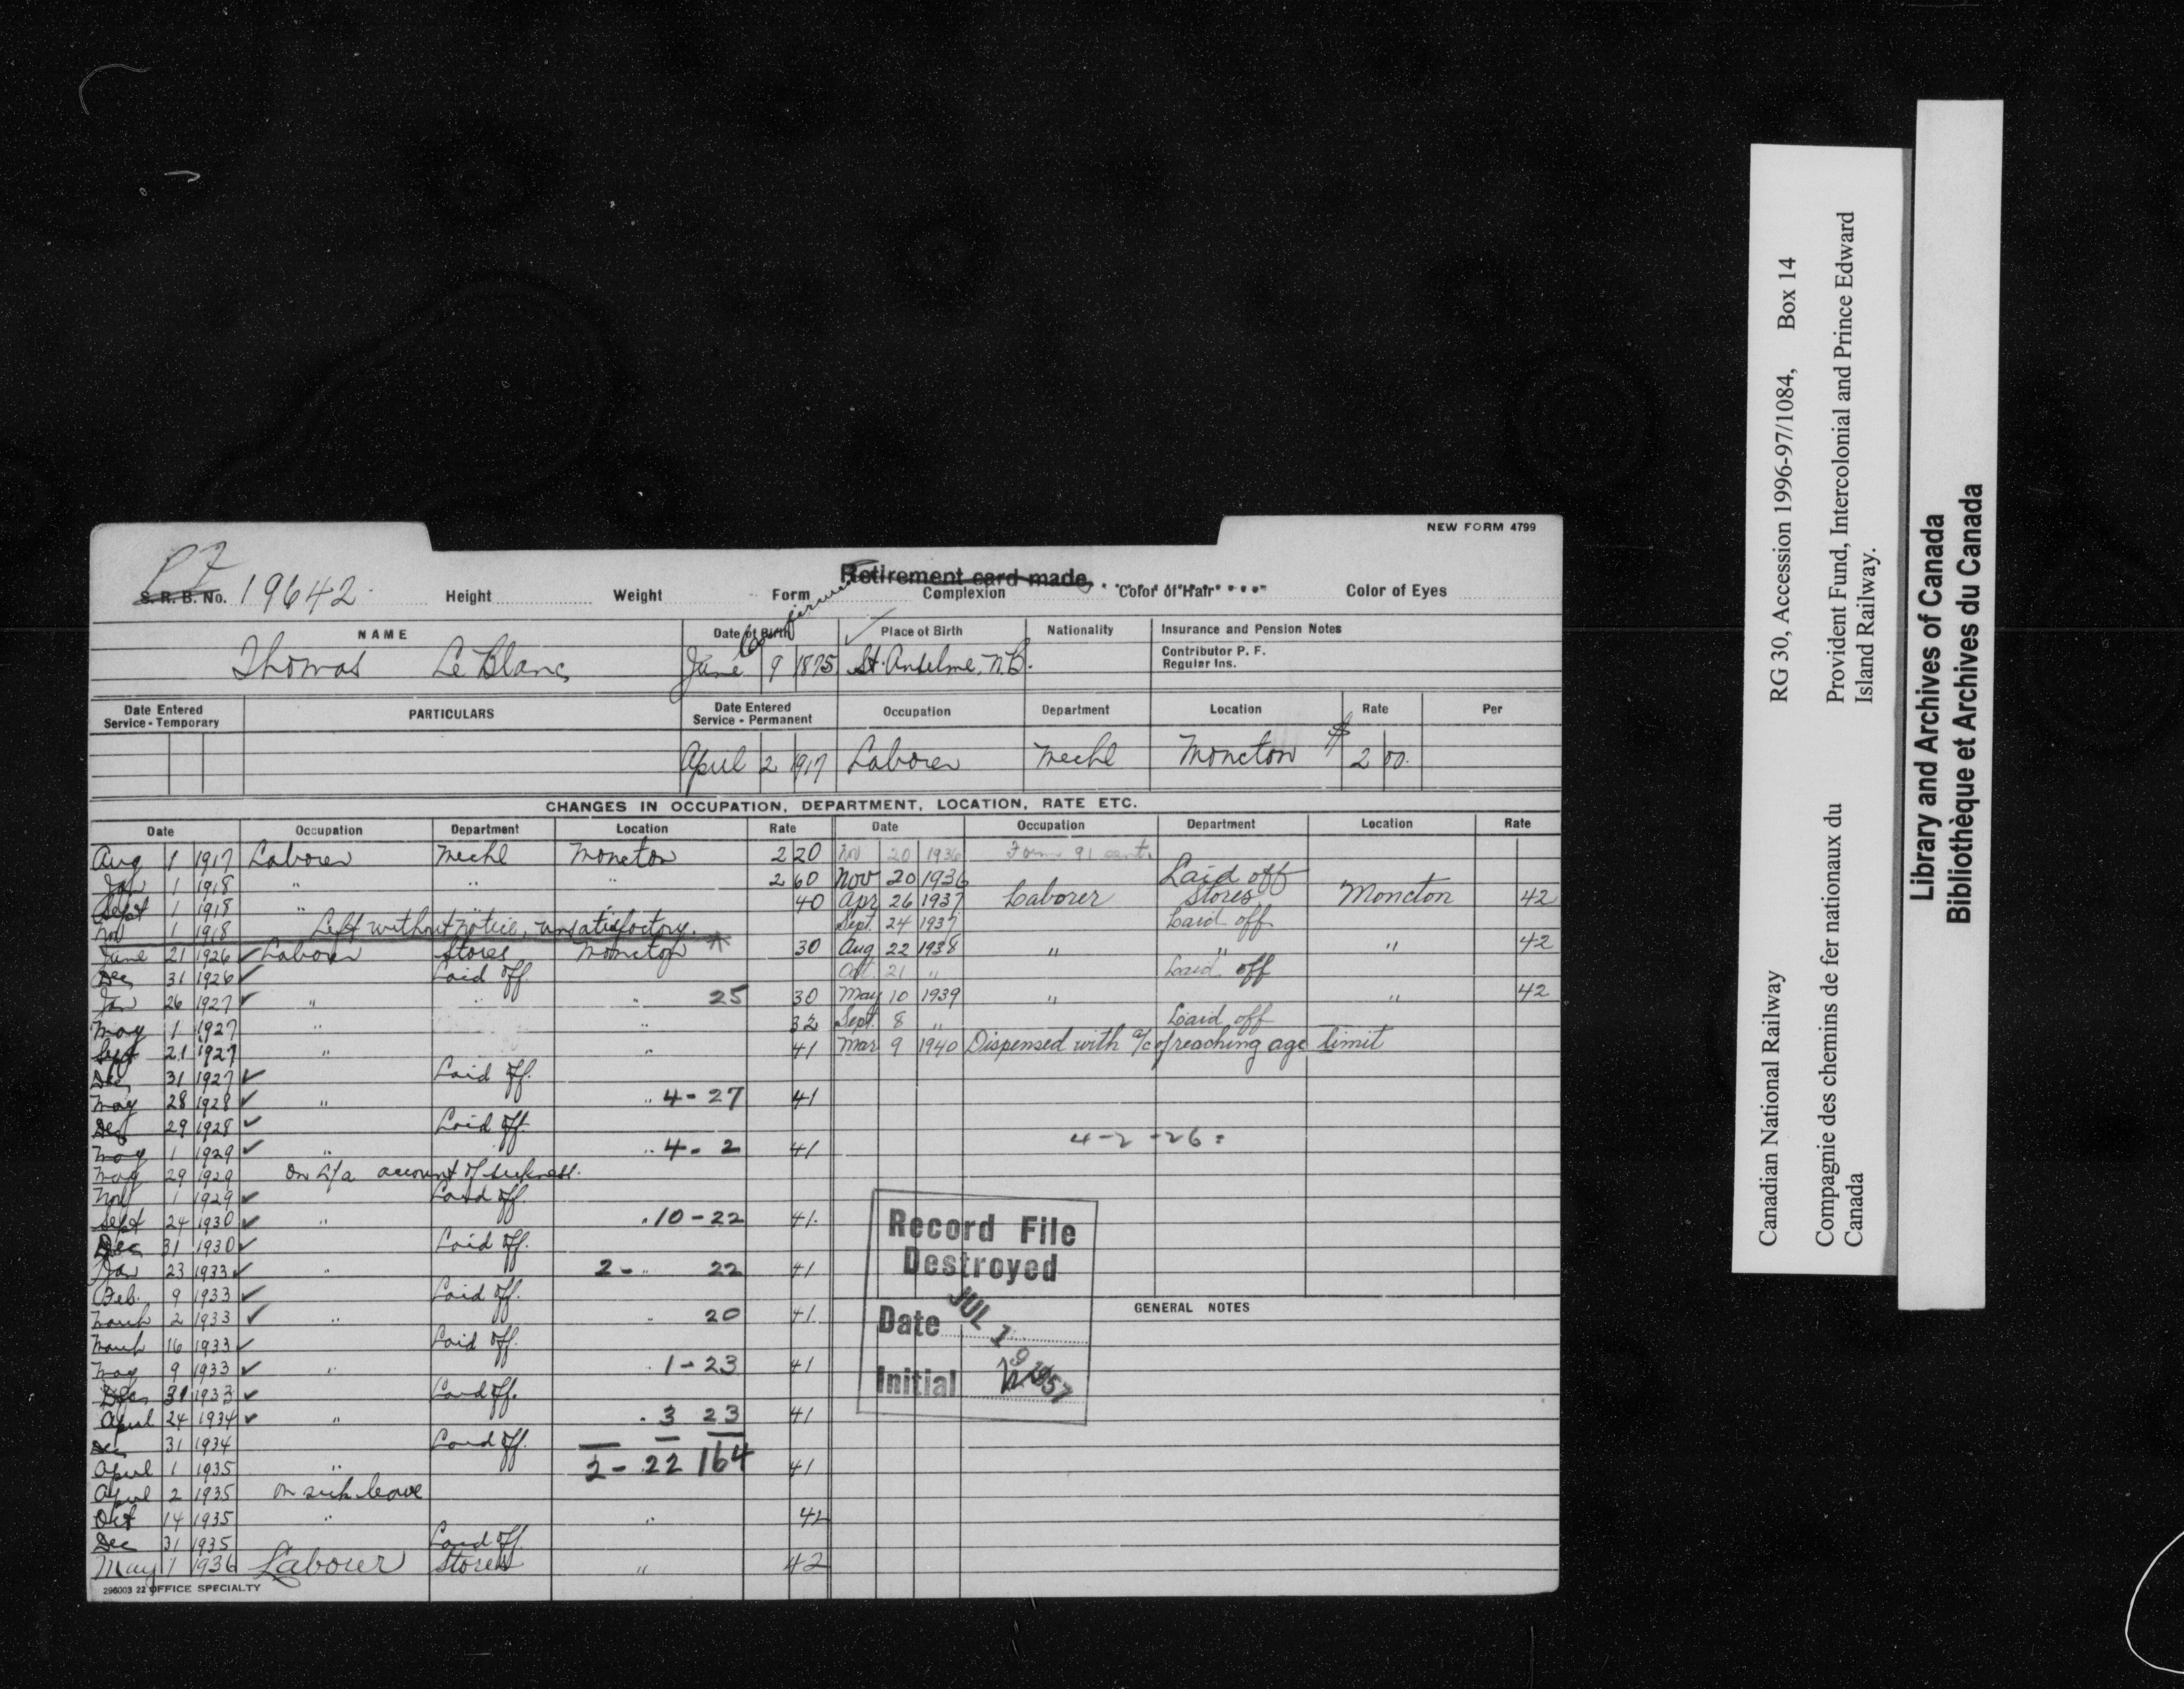 NEW FORM 4799
P F
S. R. B. No. 19642. Height Weight Form Complexion Color of Hair Color of Eyes
Retirement card made
NAME Date of Birth Place of Birth Nationality Insurance and Pension Notes
Contributor P. F.
Regular Ins.
Thomas Le Blanc June 9 1875 St. Anselme, N.B.
Date Entered Service - Temporary PARTICULARS Date Entered Service - Permanent Occupation Department Location Rate Per
April 2 1917 Laborer Mechl Moncton $ 2 00.
CHANGES IN OCCUPATION, DEPARTMENT, LOCATION, RATE ETC.
Date Occupation Department Location Rate
Aug 1 1917 Laborer Mechl Moncton 2 20
Jan 1 1918 " " " 2 60
Sept 1 1918 " " 40
Nov 1 1918 Left without notice, unsatisfactory.
June 21 1926 ✓ Laborer Stores Moncton 30
Dec 31 1926 ✓ Laid off
Jan 26 1927 ✓ " " " 25 30
May 1 1927 " " 32
Sept 21 1927 " " 41
Dec 31 1927 ✓ Laid off.
May 28 1928 ✓ " " 4-27 41
Dec 29 1928 ✓ Laid off.
May 1 1929 ✓ " " 4-2 41
May 29 1929 On L/a account of sickness.
Nov 1 1929 ✓ Laid off.
Sept 24 1930 ✓ " 10-22 41.
Dec 31 1930 ✓ Laid off.
Jan 23 1933 ✓ " 2- " 22 41
Feb. 9 1933 ✓ Laid off.
March 2 1933 ✓ " " 20 41
March 16 1933 ✓ Laid off.
May 9 1933 ✓ " 1-23 41
Dec 31 1933 ✓ Laid off.
April 24 1934 ✓ " 3 23 41
Dec 31 1934 Laid off.
April 1 1935 " 2-22 164 41
April 2 1935 On sick leave
Oct 14 1935 " " 42
Dec 31 1935 Laid off
May 1 1936 Labourer Stores " 42
296003 22 OFFICE SPECIALTY
Date Occupation Department Location Rate
Nov 20 1936 Form 91 cont.
Nov 20 1936 Laid off
Apr 26 1937 Laborer Stores Moncton 42
Sept. 24 1937 Laid off
Aug 22 1938 " " " 42
Oct. 21 " Laid off
May 10 1939 " " 42
Sept. 8 " Laid off
Mar 9 1940 Dispensed with a/c of reaching age limit
4-2-26 =
GENERAL NOTES
Record File
Destroyed
Date JUL 19 1957
Initial
Canadian National Railway RG 30, Accession 1996-97/1084, Box 14
Compagnie des chemins de fer nationaux du Canada
Provident Fund, Intercolonial and Prince Edward Island Railway.
Library and Archives of Canada
Bibliothèque et Archives du Canada